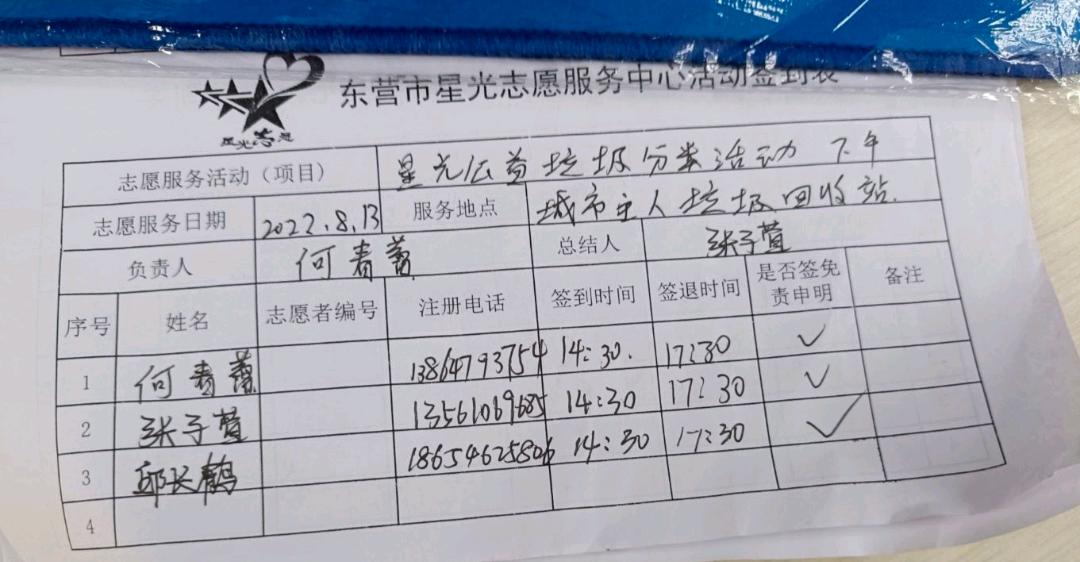 东营市星光志愿服务中心活动签到表
星光志愿
志愿服务活动（项目） 星光公益垃圾分类活动 下午
志愿服务日期 2022.8.13 服务地点 城市主人垃圾回收站.
负责人 何春蕾 总结人 张子萱
序号 姓名 志愿者编号 注册电话 签到时间 签退时间 是否签免责申明 备注
1 何春蕾 13864793754 14:30. 17:30 ✓
2 张子萱 13561069685 14:30 17:30 ✓
3 邱长鹤 18654625806 14:30 17:30 ✓
4